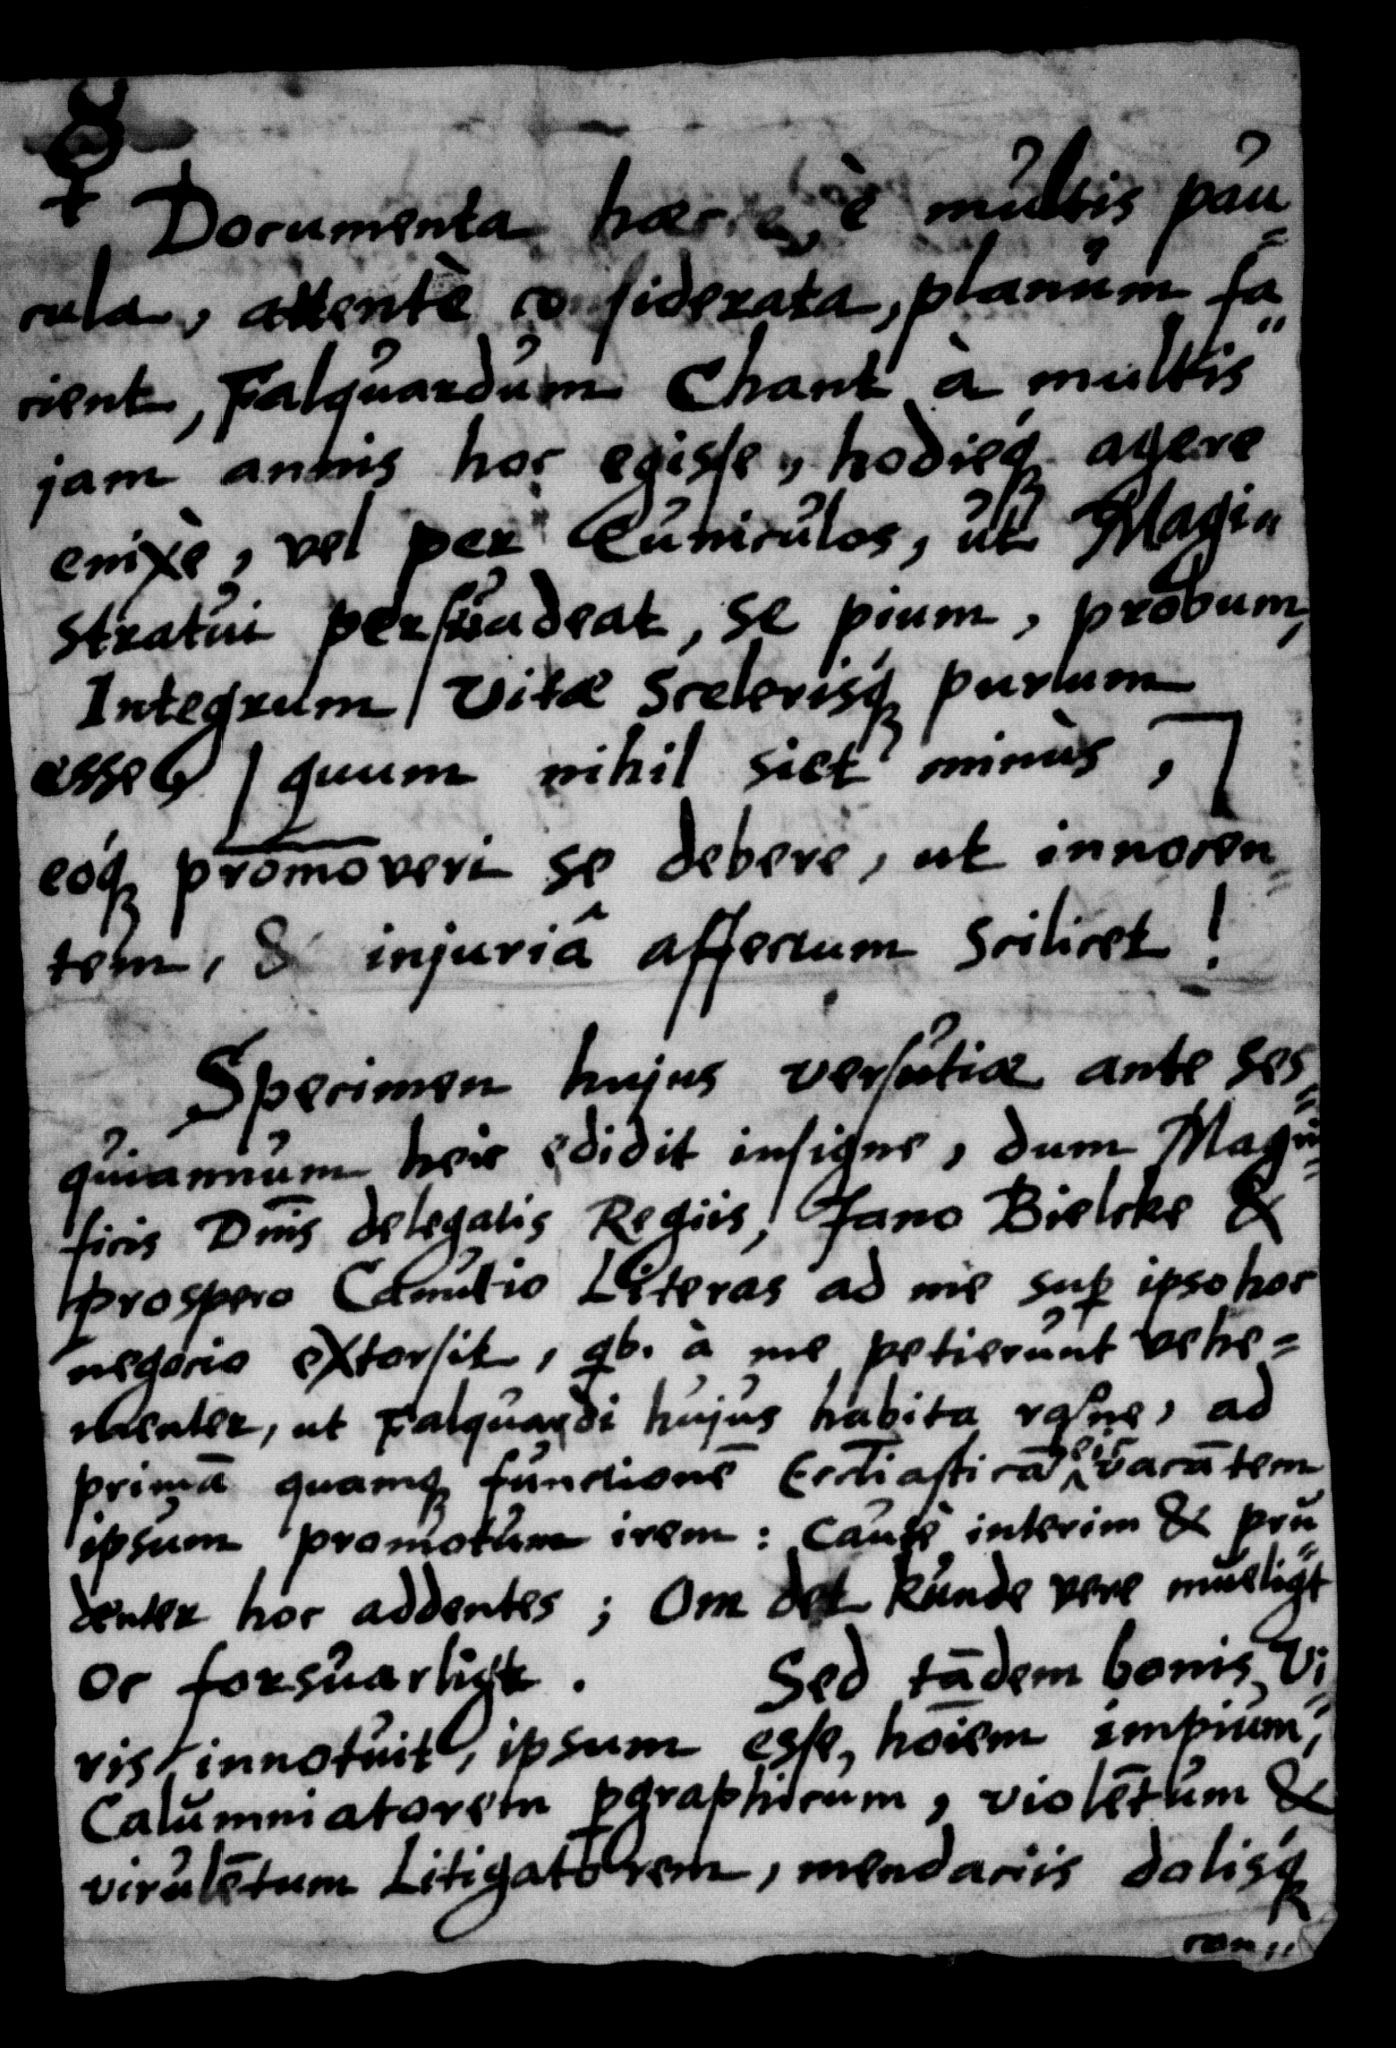 Documenta hæcce, è multis pau=
cula, attentè considerata, planum fa=
cient, Falquardum Chant à multis
jam annis hoc egisse, hodieq; agere
enixè, vel per Cuniculos, ut Magi=
stratui persuadeat, se pium, probum,
Integrum / Vitæ Scelerisq; purum
esse / quum nihil siet minùs,
eoq; promoveri se debere, ut innocen=
tem, & injuriâ affectum scilicet!
Specimen hujus versutiæ ante ses=
quiannum heic edidit insigne, dum Magni=
ficis Dn̄is delegatis Regiis, Jano Bielcke &
Prospero Canutio Literas ad me sup ipso hoc
negocio extorsit, qb. à me petierunt vehe=
menter, ut Falquardi hujus habita rōne, ad
primā quamq; functionē Eccl̄iasticā vacātem
ipsum promotum irem: cautè interim & pru=
denter hoc addentes; Om det kunde vere mueligt
oc forsuarligt. Sed tādem bonis Vi=
ris innotuit, ipsum esse hōiem impium,
Calumniatorem pgraphicum, violētum &
virulētum Litigatorem, mendaciis dolisq;
con=